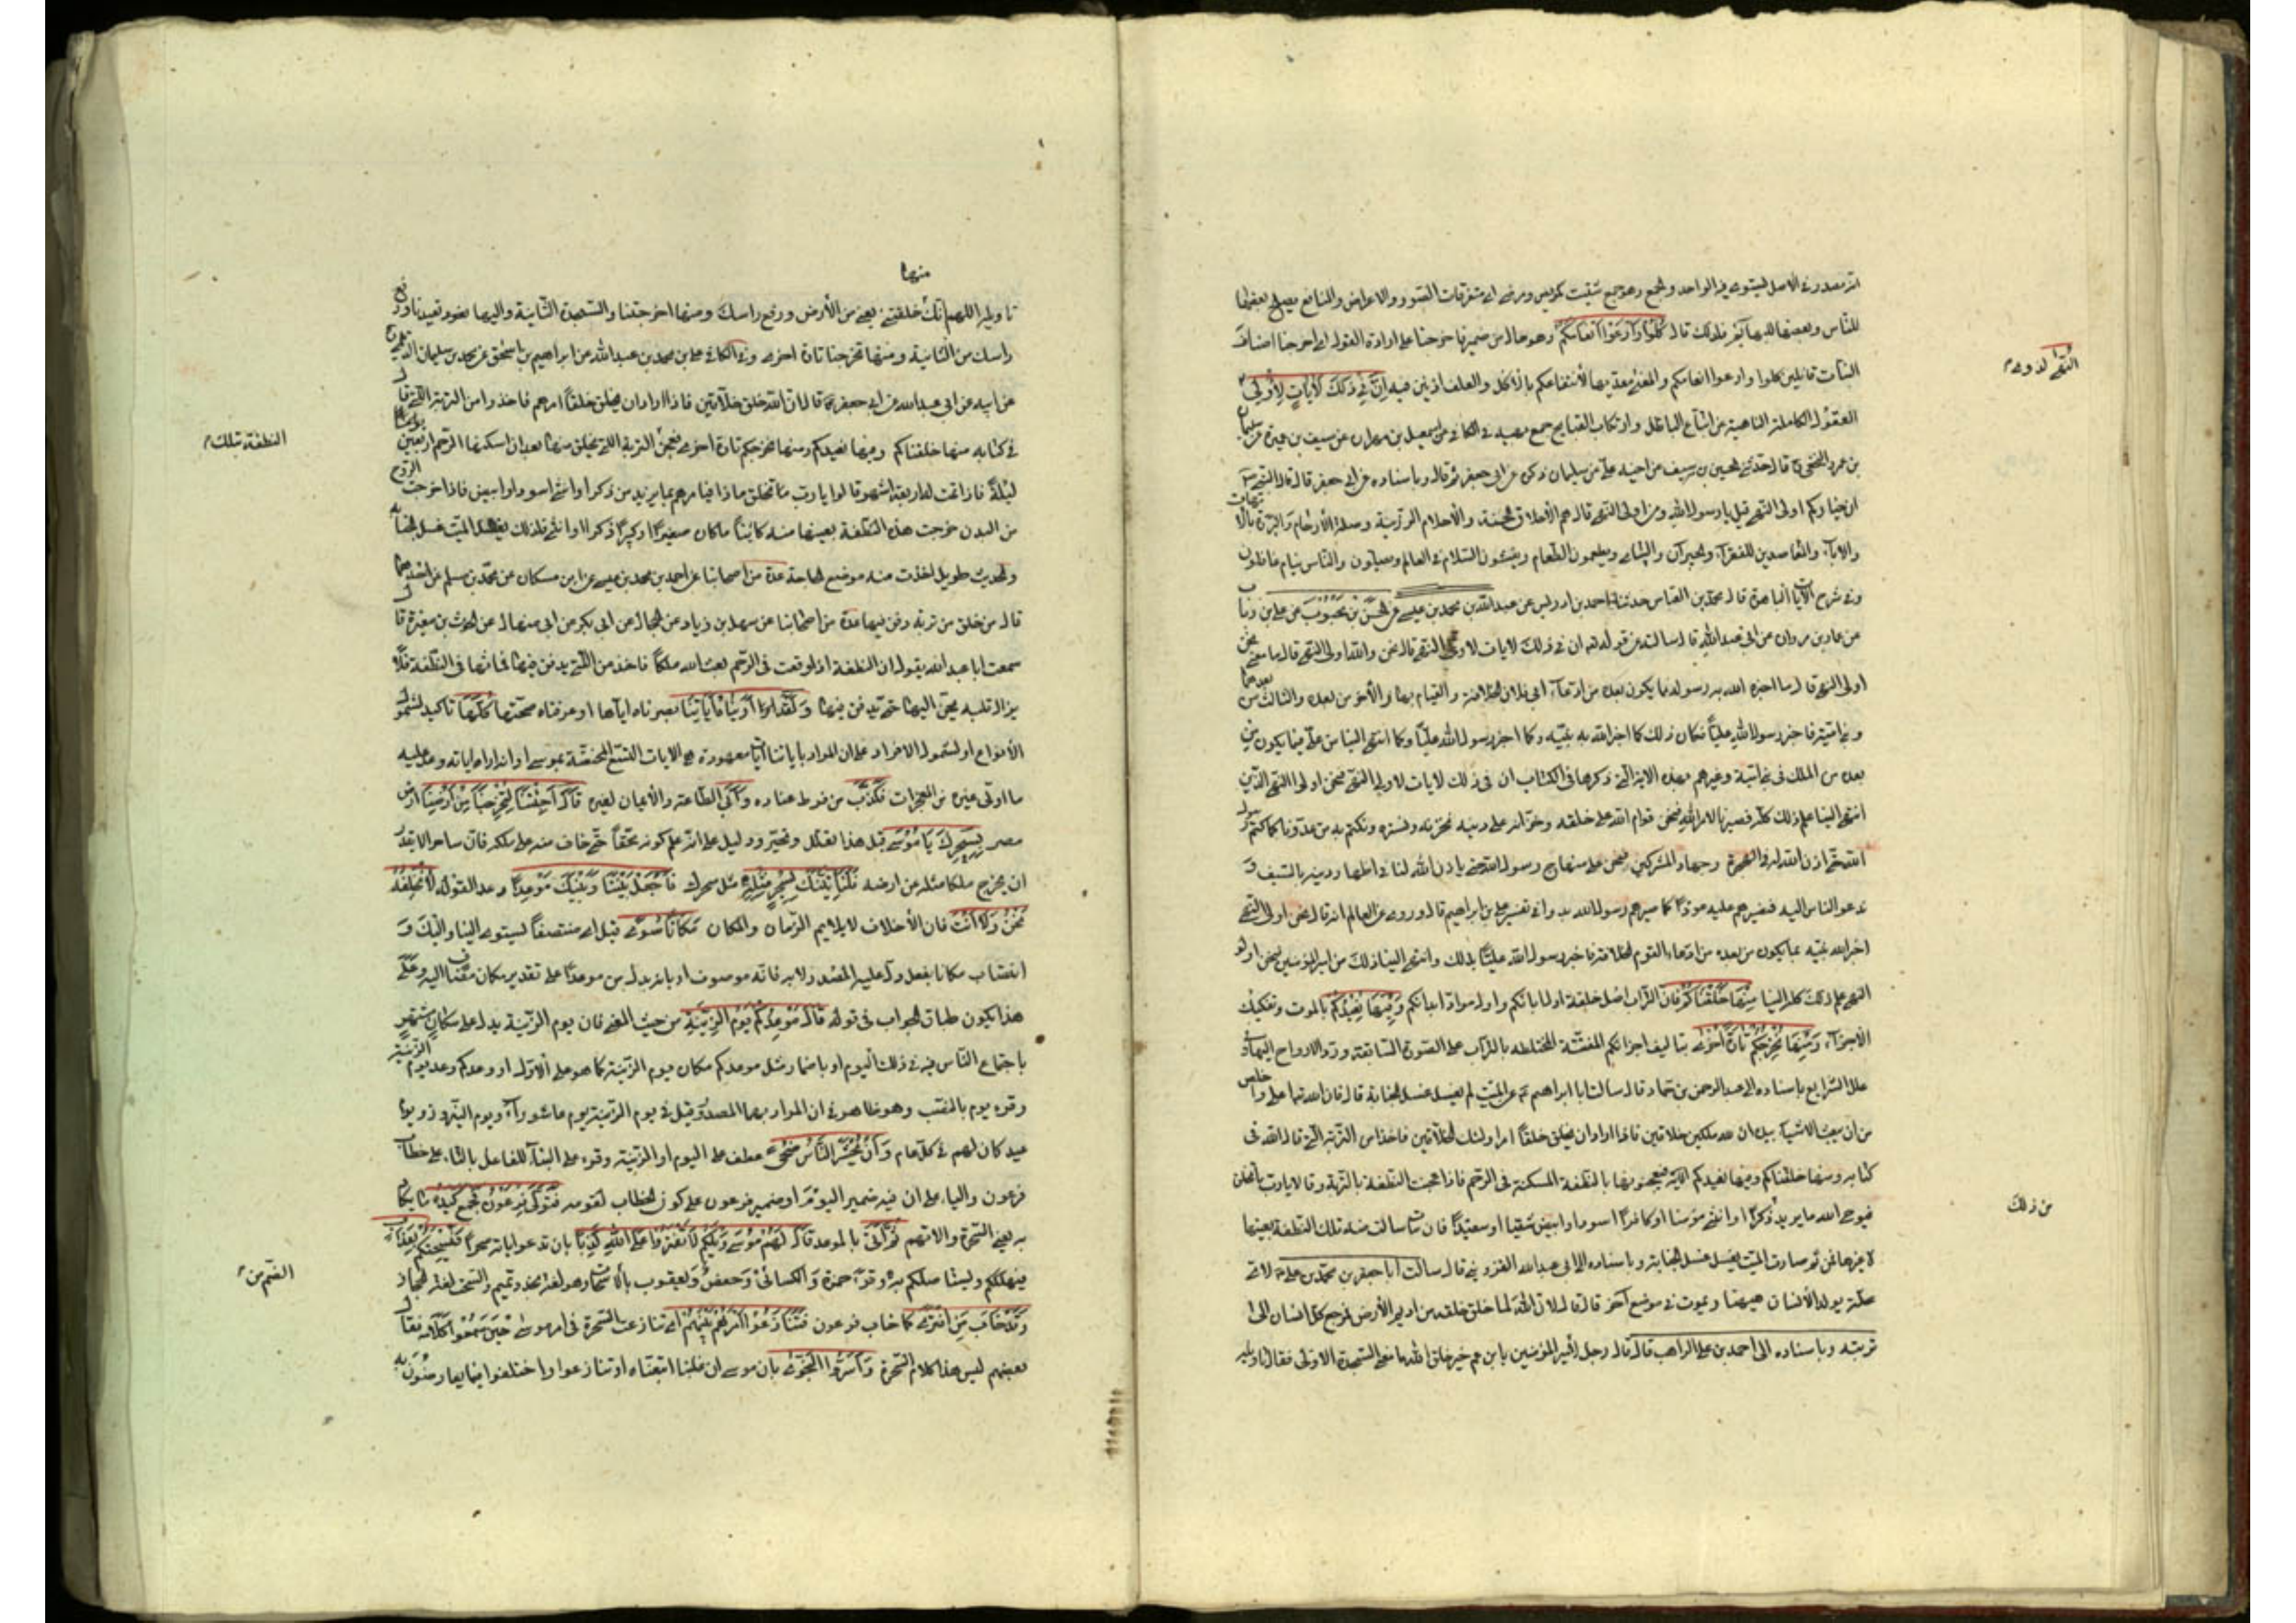 انه مصدر في الاصل ليستوى فيه الواحد والجمع وهو جمع شتيت كمريض ومرضى اى متفرقات الصور والاعراض والمنافع يصلح بعضها
للناس وبعضها للبهايم فلذلك قال كُلُوا وَارْعَوْا أَنْعَامَكُمْ وهو حال من ضمير فاخرجنا على ارادة القول اى اخرجنا اصناف
النبات قائلين كلوا وارعوا انعامكم والمعنى معديها لانتفاعكم بالاكل والعلف اذنين فيه إِنَّ فِي ذَلِكَ لَآيَاتٍ لِأُولِي
النُّهَى لذوى
العقول الكاملة الناهية عن اتباع الباطل وارتكاب القبايح جمع نهية في الكافى عن اسمعيل بن مهران عن سيف بن عميرة عن سليمان
بن عمرو النخعى قال حدثنى الحسين بن سيف عن اخيه على عن سليمان ذكره عن ابى جعفر قال وباسناده عن ابى جعفر قال قال النبى
ان خياركم اولى النهى قيل يا رسول الله ومن اولى النهى قال هم الأخلاق الحسنة والأحلام الرزينة وصلة الأرحام والبررة بالامهات
والاباء والمتعاهدين للفقراء والجيران واليتامى ويطعمون الطعام ويفشون السلام في العالم ويصلون والناس نيام غافلون
وفي شرح الآيات الباهرة قال محمد بن العباس حدثنا احمد بن ادريس عن عبدالله بن محمد بن عيسى عن الحسن بن محبوب عن على بن رئاب
عن عمار بن مروان عن ابى عبدالله قال سالته عن قوله ان في ذلك لايات لاولى النهى قال نحن والله اولى النهى قال ما معنى
اولى النهى قال ما اخبر الله به رسوله مما يكون بعده من ادعاء ابى فلان الخلافة والقيام بها والآخر من بعده والثالث من بعدهما
وبنى امية فاخبر رسول الله عليّا فكان ذلك كما اخبر الله به نبيه وكما اخبر رسول الله عليّا وكما انتهى الينا من على فيما يكون من
بعده من الملك في بنى امية وغيرهم فهذه الاية التى ذكرها في الكتاب ان في ذلك لايات لاولى النهى فنحن اولوا النهى الذين
انتهى الينا علم ذلك كله فصبرنا لامر الله فنحن قوام الله على خلقه وخزانه على دينه نخزنه ونستره ونكتم به من عدونا كما كتم رسول
الله حتى اذن الله له في الهجرة وجهاد المشركين فنحن على منهاج رسول الله حتى ياذن الله لنا في اظهار دينه بالسيف و
ندعو الناس اليه فنضربهم عليه عودًا كما ضربهم رسول الله بدوا في تفسير على بن ابراهيم قال وروى عن العالم انه قال نحن اولى النهى
اخبر الله نبيه بما يكون من بعده من ادعاء القوم الخلافة فاخبر رسول الله عليّا بذلك وانتهى الينا ذلك من امير المؤمنين فنحن اولو
النهى علم ذلك كله الينا مِنْهَا خَلَقْنَاكُمْ فان التراب اصل خلقة اول ابائكم واول مواد ابدانكم وَفِيهَا نُعِيدُكُمْ بالموت وتفكيك
الأجزاء وَمِنْهَا نُخْرِجُكُمْ تَارَةً أُخْرَى بتاليف اجزائكم المفتتة المختلطة بالتراب على الصورة السابقة ورد الارواح اليها وفى
علل الشرايع باسناده الى عبدالرحمن بن حماد قال سالت ابا ابراهيم عن الميت لم يغسل غسل الجنابة قال ان الله تعالى اعلى واخلص
من ان يبعث الاشياء بيده ان لله ملكين خلاقين فاذا اراد ان يخلق خلقًا امر اولئك الخلاقين فاخذوا من التربة التى قال الله في
كتابه ومنها خلقناكم وفيها نعيدكم الاية فيعجنونها بالنطفة المسكنة في الرحم فاذا عجنت النطفة بالتربة وقالا يا رب ما نخلق
فيوحى الله ما يريد ذكرًا او انثى مؤمنا او كافرًا اسود او ابيض شقيا او سعيدًا فان مات سالت منه تلك النطفة بعينها
من ذلك
لا غيرها فمن ثم صار الميت يغسل غسل الجنابة وباسناده الى ابى عبدالله القزوينى قال سالت ابا جعفر بن محمد بن على لاى
علة يولد الأنسان هيهنا ويموت في موضع آخر قال قال لان الله لما خلق خلقه من اديم الأرض فمرجع كل انسان الى
تربته وباسناده الى احمد بن على الراهب قال قال رجل لأمير المؤمنين يا بن عم خير خلق الله ما معنى السجدة الاولى فقال تاويله
تاويله اللهم انك منها خلقتنى يعنى من الأرض ورفع راسك ومنها اخرجتنا والسجدة الثانية واليها نعود تعيدنا ورفع
راسك من الثانية ومنها تخرجنا تارة اخرى وفي الكافى على بن محمد بن عبدالله عن ابراهيم بن اسحق عن محمد بن سليمان الديلمى
عن ابيه عن ابى عبدالله عن ابى جعفر قال ان الله خلق خلاقين فاذا اراد ان يخلق خلقًا امرهم فاخذوا من التربة التى قال
في كتابه منها خلقناكم وفيها نعيدكم ومنها نخرجكم تارة اخرى فعجن النطفة بتلك التربة التى يخلق منها بعد ان اسكنها الرحم اربعين
ليلةً فاذا تمت له اربعة اشهر قالوا يا رب ما تخلق ماذا فيامرهم بما يريد من ذكر او انثى اسود او ابيض فاذا خرجت الروح
من البدن خرجت هذه النطفة بعينها منه كائنًا ما كان صغيرًا او كبيرًا ذكرا او انثى فلذلك يغسل الميت غسل الجنابة
والحديث طويل اخذت منه موضع الحاجة عدة من اصحابنا عن احمد بن محمد بن عيسى عن ابن مسكان عن محمد بن مسلم عن احدهما
قال من خلق من تربة دفن فيها عدة من اصحابنا عن سهل بن زياد عن الحجال عن ابى بكر عن ابى منهال عن الحرث بن مغيرة قال
سمعت ابا عبدالله يقول ان النطفة اذا وقعت في الرحم بعث الله ملكًا فاخذ من التربة يدفن فيها فماثها في النطفة فلا
يزال قلبه يحن اليها حتى يدفن فيها وَلَقَدْ أَرَيْنَاهُ آيَاتِنَا بصرناه اياها او عرفناه صحتها كُلَّهَا تاكيد لشمول
الأنواع او لشمول الافراد على ان المراد باياتنا ايات معهودة هى الايات التسع المختصة بموسى او انه اراه اياته وعد عليه
ما اوتى غيره من المعجزات فَكَذَّبَ من فرط عناده وَأَبَى الطاعة والأيمان لغيره قَالَ أَجِئْتَنَا لِتُخْرِجَنَا مِنْ أَرْضِنَا ارض
مصر بِسِحْرِكَ يَا مُوسَى قيل هذا تعلل وتحير ودليل على انه علم كونه محقًّا حتى خاف منه على ملكه فان ساحرا لا يقدر
ان يخرج ملكا مثله من ارضه فَلَنَأْتِيَنَّكَ بِسِحْرٍ مِثْلِهِ مثل سحرك فَاجْعَلْ بَيْنَنَا وَبَيْنَكَ مَوْعِدًا وعدا لقوله لَا نُخْلِفُهُ
نَحْنُ وَلَا أَنْتَ فان الأخلاف لا يلايم الزمان والمكان مَكَانًا سُوًى قيل اى منتصفًا ليستوى الينا واليك و
انتصاب مكانا بفعل دل عليه المصدر لا به فانه موصوف او بانه بدل من موعدًا على تقدير مكان مضاف اليه وعلى
هذا يكون طباق الجواب في قوله قَالَ مَوْعِدُكُمْ يَوْمُ الزِّينَةِ من حيث المعنى فان يوم الزينة يدل على مكان مشتهر
باجتماع الناس فيه في ذلك اليوم او باضمار مثل موعدكم مكان يوم الزينة كما هو على الأول او وعدكم وعد يوم الزينة
وقرء يوم بالنصب وهو ظاهر في ان المراد بهما المصدر وقيل في يوم الزينة يوم عاشوراء ويوم النيروز ويوم
عيد كان لهم في كل عام وَأَنْ يُحْشَرَ النَّاسُ ضُحًى عطف على اليوم او الزينة وقرء على البناء للفاعل بالتاء على خطاب
فرعون والياء على ان فيه ضمير اليوم او ضمير فرعون على كون الخطاب لقومه فَتَوَلَّى فِرْعَوْنُ فَجَمَعَ كَيْدَهُ ما يكاد
به يعنى السحرة والاتهم ثُمَّ أَتَى بالموعد قَالَ لَهُمْ مُوسَى وَيْلَكُمْ لَا تَفْتَرُوا عَلَى اللَّهِ كَذِبًا بان تدعوا اياته سحرًا فَيُسْحِتَكُمْ بِعَذَابٍ
فيهلككم ويستاصلكم به وقرء حمزة والكسائى وحفص ويعقوب بالضم من الاسحات وهو لغة نجد وتميم والسحت لغة الحجاز
وَقَدْ خَابَ مَنِ افْتَرَى كما خاب فرعون فَتَنَازَعُوا أَمْرَهُمْ بَيْنَهُمْ اى تنازعت السحرة في امر موسى حين سمعوا كلامه فقال
بعضهم ليس هذا كلام السحرة وَأَسَرُّوا النَّجْوَى بان موسى ان غلبنا اتبعناه او تنازعوا واختلفوا فيما يعارضون به